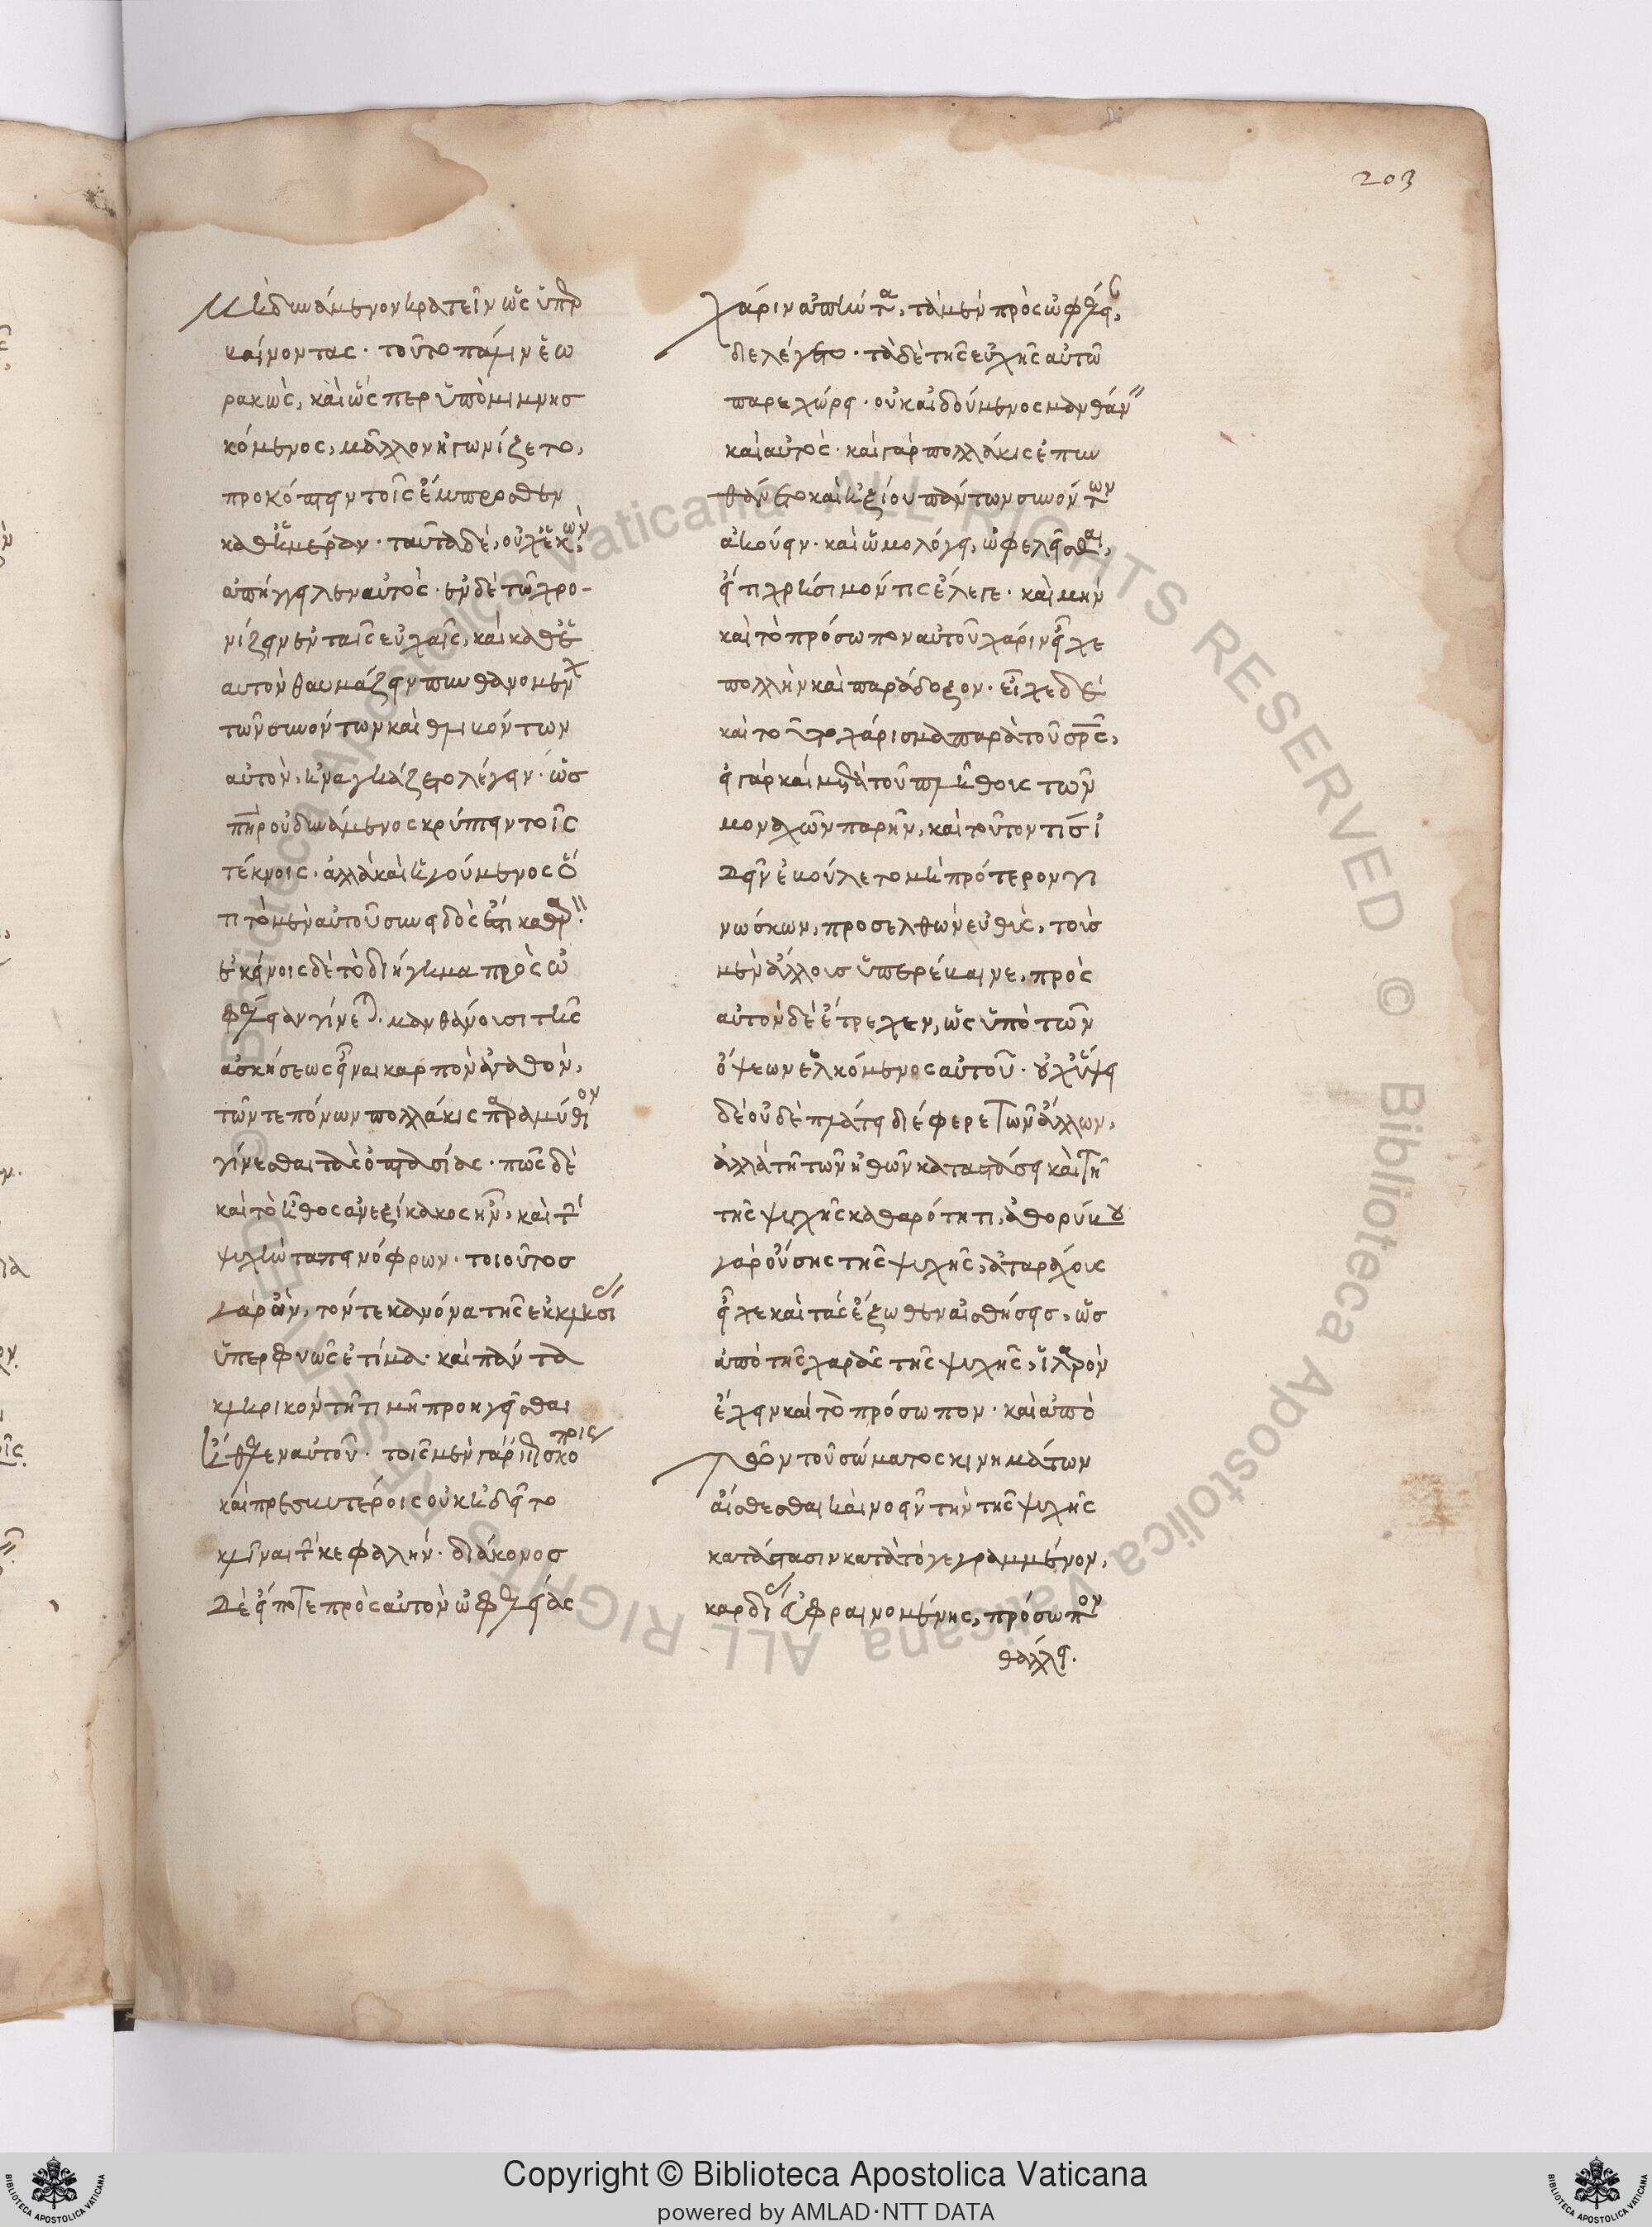 203
μὴ δυνάμενον κρατεῖν ὡς ὑπερ
βαίνοντας· τοῦτο πάλιν ἑω
ρακὼς, καὶ ὥσπερ ὑπομιμνησ
κόμενος, μᾶλλον ἠγωνίζετο,
προκόπτειν τοῖς ἔμπροσθεν
καθ ἡμέραν· ταῦτα δὲ, οὐχ ἑκὼν
ἀπήγγειλεν αὐτός· ἐν δὲ τῶ χρο-
νίζειν ἐν ταῖς εὐχαῖς, καὶ καθ ἑ
αυτὸν θαυμάζειν πυνθανομέν
τῶν συνόντων καὶ θλιβόντων
αὐτὸν, ἠναγκάζετο λέγειν· ὡσ
πὴρ οὐ δυνάμενος κρύπτειν τοῖς
τέκνοις· ἀλλὰ καὶ ἡγούμενος ὅ
τι τὸ μὲν αὐτοῦ συνειδὸς ἐστι καθαρ
ἐκείνοις δὲ τὸ διήγημα πρὸς ὠ
φέλειαν γίνεται· μανθάνουσι τῆς
ἀσκήσεως εἶναι καρπὸν ἀγαθὸν,
τῶν τε πόνων πολλάκις παραμύθιον
γίνεσθαι τὰς ὀπτασίας· πῶς δὲ
καὶ τὸ ἦθος ἀνεξίκακος ἦν, καὶ τὴν
ψυχὴν ταπεινόφρων· τοιοῦτοσ
γὰρ ὢν, τόν τε κανόνα τῆς ἐκκλησίας
ὑπερφυῶς ἐτίμα· καὶ πάντα
κληρικὸν τῆ τιμῆ προηγεῖσθαι
ἤθελεν αὐτοῦ· τοῖς μὲν γὰρ ἐπισκόποις
καὶ πρεσβυτέροις οὐκ ἠδεῖτο
κλῖναι τὴν κεφαλήν· διάκονοσ
δὲ εἴποτε πρὸς αὐτὸν ὠφελείας
χάριν ἀπήντα, τὰ μὲν πρὸς ὠφέλειαν
διελέγετο· τὰ δὲ τῆς εὐχῆς αὐτῶ
παρεχώρει· οὐκ αἰδούμενος μανθάνειν
καὶ αὐτός· καὶ γὰρ πολλάκις ἐπυν
θάνετο καὶ ἠξίου πάντων συνόντων
ἀκούειν· καὶ ὡμολόγει, ὠφελεῖσθαι,
εἴ τι χρήσιμόν τις ἔλεγε· καὶ μὴν
καὶ τὸ πρόσωπον αὐτοῦ χάριν εἶχε
πολλὴν καὶ παράδοξον· εἶχε δὲ
καὶ τοῦτο χάρισμα παρὰ τοῦ σρς,
εἰ γὰρ καὶ μετὰ τοῦ πλήθους τῶν
μοναχῶν παρῆν, καὶ τοῦτόν τις ἰ
δεῖν ἐβούλετο μὴ πρότερον γι
νώσκων, προσελθὼν εὐθὺς, τοὺς
μὲν ἄλλους ὑπερέβαινε, πρὸς
αὐτὸν δὲ ἔτρεχεν, ὡς ὑπὸ τῶν
ὄψεων ἑλκόμενος αὐτοῦ· οὐχ ὕψει
δὲ οὐδὲ πλάτει διέφερε τῶν ἄλλων,
ἀλλὰ τῆ τῶν ἠθῶν καταστάσει καὶ τῆ
τῆς ψυχῆς καθαρότητι, ἀθορύβου
γὰρ οὔσης τῆς ψυχῆς, ἀταράχους
εἶχε καὶ τὰς ἔξωθεν αἰσθήσεις, ὡσ
ἀπὸ τῆς χαρᾶς τῆς ψυχῆς, ἱλαρὸν
ἔχειν καὶ τὸ πρόσωπον· καὶ ἀπὸ
τῶν τοῦ σώματος κινημάτων
αἰσθέσθαι καὶ νοεῖν τὴν τῆς ψυχῆς
κατάστασιν κατὰ τὸ γεγραμμένον,
καρδίας εὐφραινομένης, πρόσωπον
θάλλει.
Copyright © Biblioteca Apostolica Vaticana
powered by AMLAD·NTT DATA